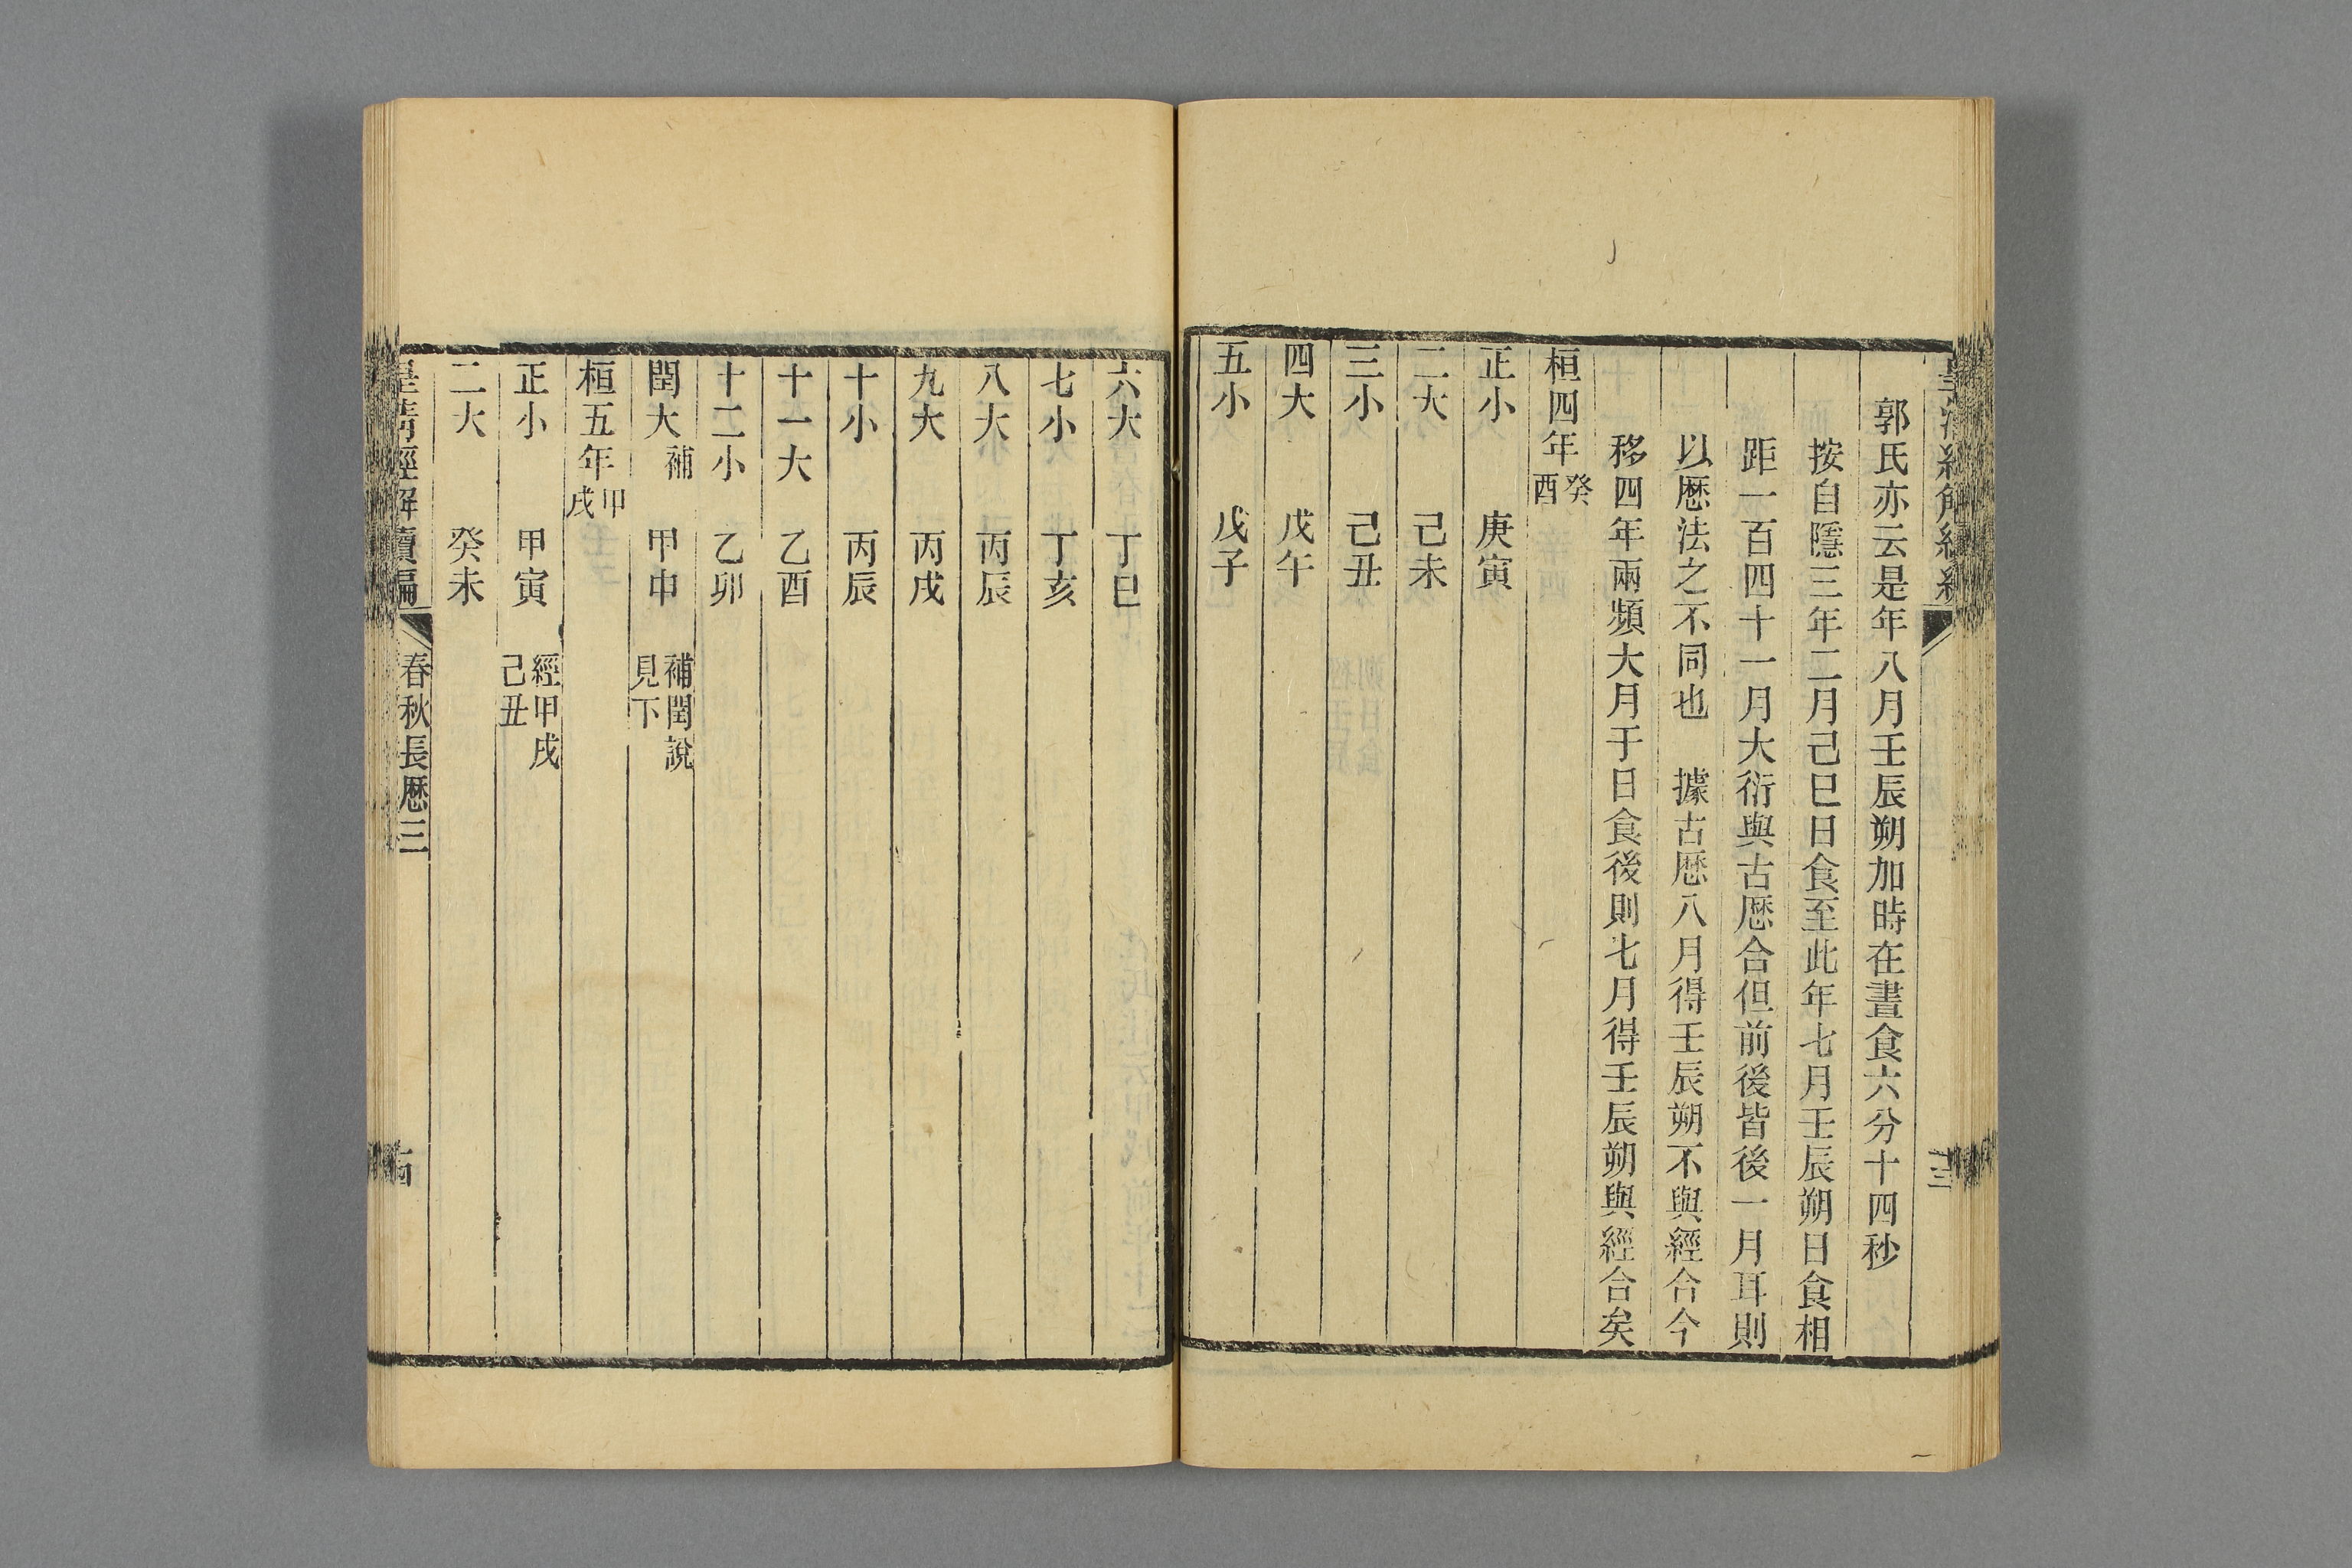 郭氏亦云是年八月壬辰朔加時在晝食六分十四秒
按自隱三年二月己巳日食至此年七月壬辰朔日食相
距一百四十一月大衍與古厯合但前後皆後一月耳則
以厯法之不同也　據古厯八月得壬辰朔不與經合今
移四年兩頻大月于日食後則七月得壬辰朔與經合矣
桓四年癸酉
正小　庚寅
二大　己未
三小　己丑
四大　戊午
五小　戊子
六大　丁巳
七小　丁亥
八大　丙辰
九大　丙戌
十小　丙辰
十一大　乙酉
十二小　乙卯
閏大補　甲申　補閏說見下
桓五年甲戌
正小　甲寅　經甲戌己丑
二大　癸未
皇清經解續編　春秋長厯三　十四